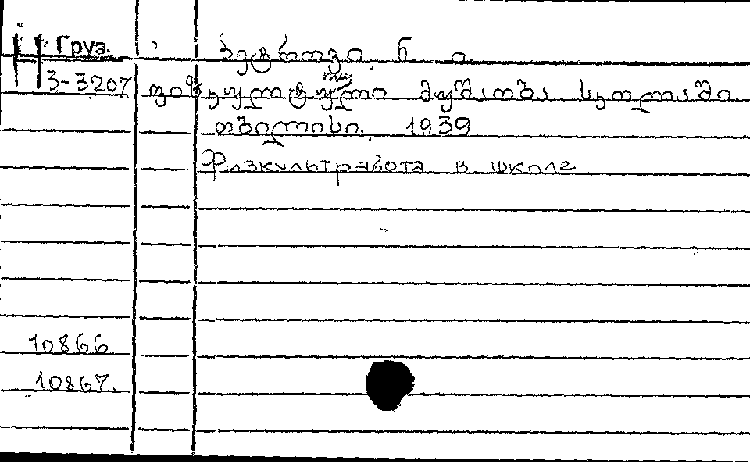 Груз.
პეტროვი, ნ. ი.
3-3207 ფიზკულტურული მუშაობა სკოლაში
თბილისი, 1939
Физкультработа в школе
10866
10867.